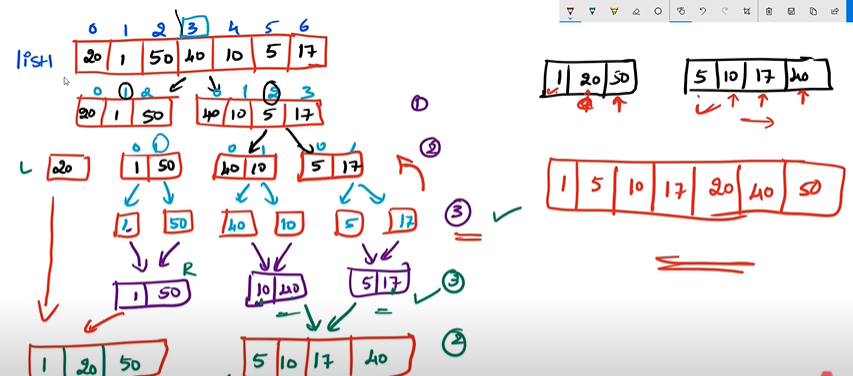 0 1 2 3 4 5 6
list1 20 1 50 40 10 5 17
0 1 2 0 1 2 3
20 1 50 40 10 5 17 ①
0 1 0 1 0 1 ②
L 20 1 50 40 10 5 17
1 50 40 10 5 17 ③
R
1 50 10 40 5 17 ③
1 20 50 5 10 17 40 ②
1 20 50 5 10 17 40
1 5 10 17 20 40 50